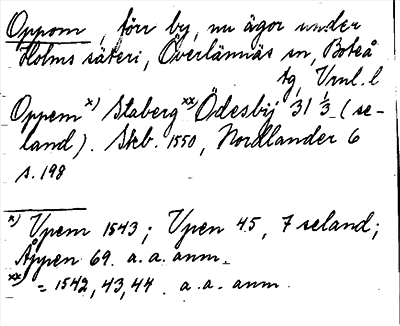 Oppom, förr by, nu ägor under
Holms säteri, Överlännäs sn, Boteå
tg, Vnl. l
Oppem x) Staberg xx) Ödesbÿ 31 1/3 (se-
land). Skb. 1550, Nordlander 6
s. 198
x) Vpem 1543; Vpen 45, 7 seland;
Åppen 69. a. a. anm.
xx) = 1542, 43, 44. a. a. anm.